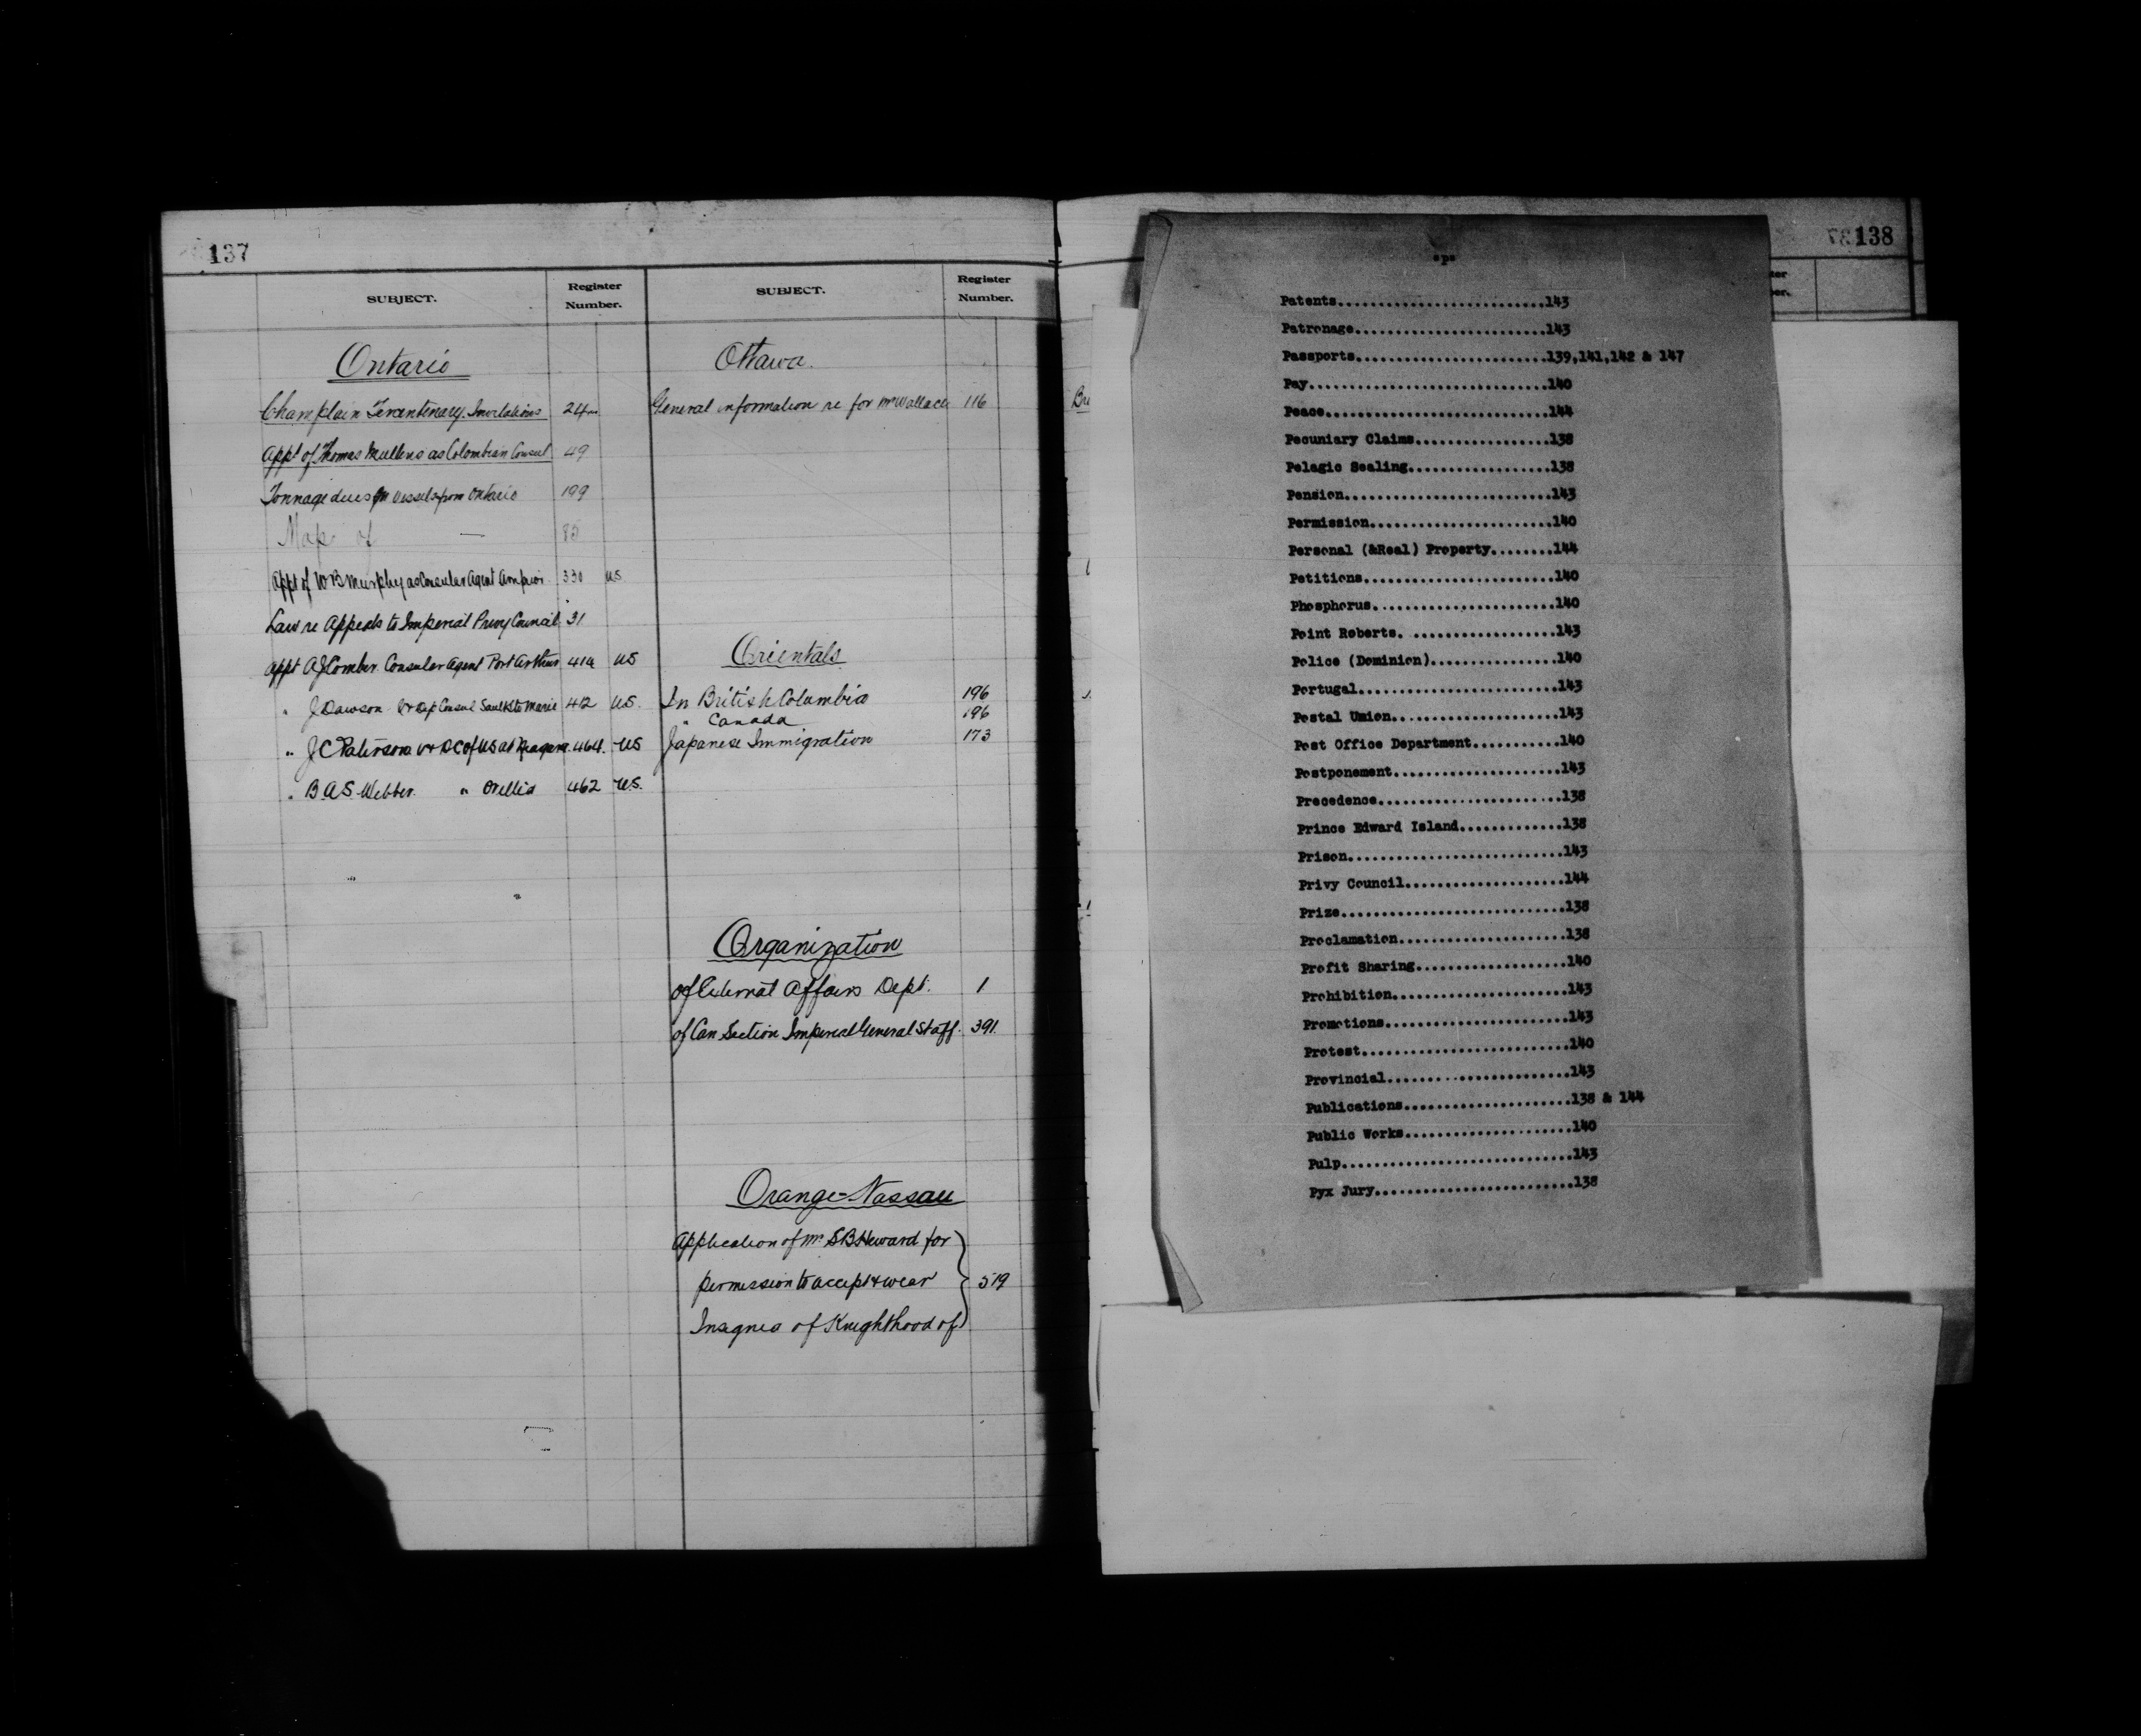 137
SUBJECT. Register Number.
Ontario
Champlain Tercentenary. Invitations 24
Appt of Thomas Mullens as Colombian Consul 49
Tonnage dues on vessels from Ontario 199
Map of — 85
Appt of W B Murphy as Consular Agent Arnprior 330 US
Law re Appeals to Imperial Privy Council 31
Appt A J Comber Consular Agent Port Arthur 414 US
" J Dawson V & Dep Consul Sault Ste Marie 412 US.
" J C Paterson V & D C of US at Niagara 464. US
" B.A.S. Webber " Orillia 462 US.
SUBJECT. Register Number.
Ottawa.
General information re for Mr Wallace 116
Orientals
In British Columbia 196
" Canada 196
Japanese Immigration 173
Organization
of External Affairs Dept. 1
of Can Section Imperial General Staff. 391.
Orange-Nassau
Application of Mr S B Heward for
permission to accept & wear 519
Insignia of Knighthood of
138
"P"
Patents..........................143
Patronage........................143
Passports........................139,141,142 & 147
Pay..............................140
Peace............................144
Pecuniary Claims.................138
Pelagic Sealing..................138
Pension..........................143
Permission.......................140
Personal (&Real) Property........144
Petitions........................140
Phosphorus.......................140
Point Roberts. ..................143
Police (Dominion)................140
Portugal.........................143
Postal Union.....................143
Post Office Department...........140
Postponement.....................143
Precedence.......................138
Prince Edward Island.............138
Prison...........................143
Privy Council....................144
Prize............................138
Proclamation.....................138
Profit Sharing...................140
Prohibition......................143
Promotions.......................143
Protest..........................140
Provincial.......................143
Publications.....................138 & 144
Public Works.....................140
Pulp.............................143
Pyx Jury.........................138